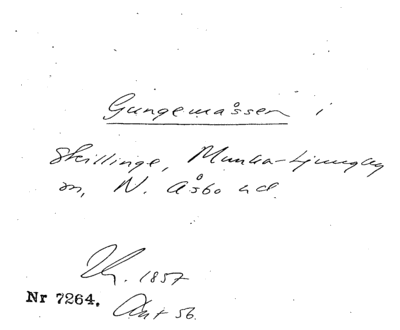 Gungemåssen i
Skillinge, Munka-Ljungby
sn, N. Åsbo hd.
1857
Nr 7264. Akt 56.